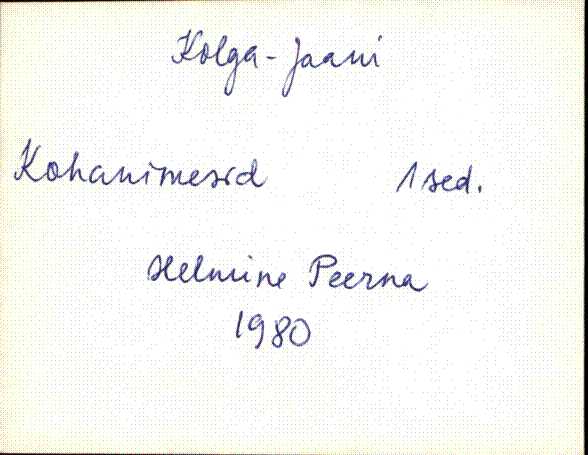 Kolga-Jaani
Kohanimesid 1 sed.
Helmine Peerna
1980